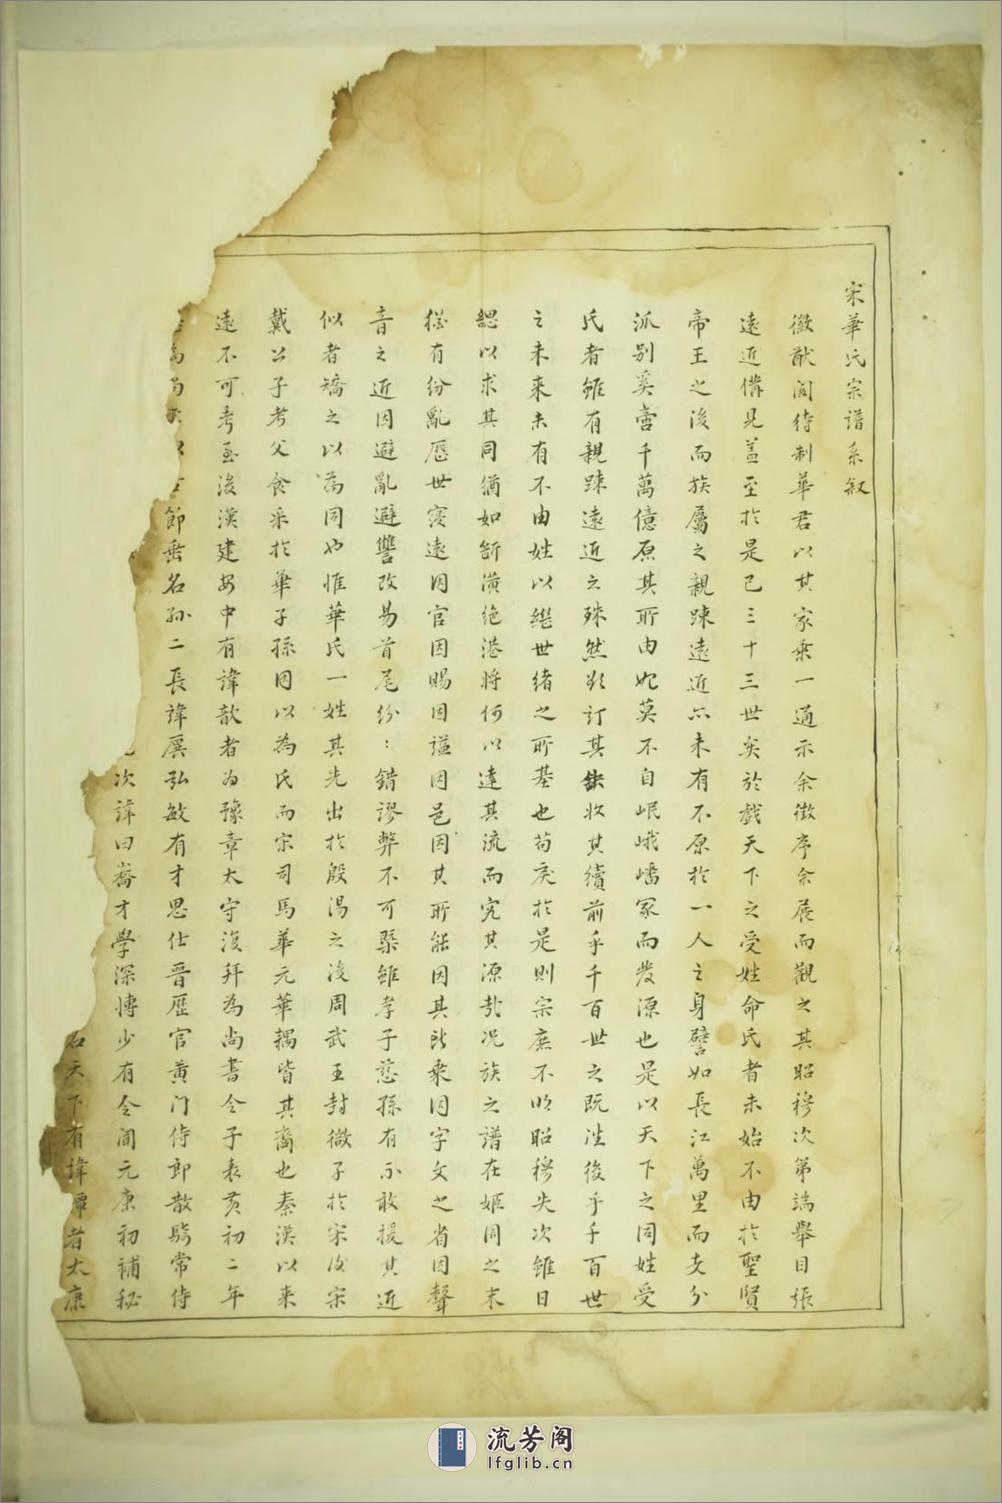 宋華氏宗譜系叙
徽猷閣待制華君以其家乗一通示余徵序余展而觀之其昭穆次第端舉目張
遠近俻見盖至於是已三十三世矣於戲天下之受姓命氏者未始不由於聖賢
帝王之後而族屬之親踈遠近亦未有不原於一人之身譬如長江萬里而支分
派别奚啻千萬億原其所由起莫不自岷峨嶓冢而發源也是以天下之同姓受
氏者雖有親踈遠近之殊然欲訂其缺收其續前乎千百世之既徃後乎千百世
之未来未有不由姓以継世绪之所基也苟戾於是則宗庶不明昭穆失次雖日
緦以求其同猶如斷潢绝港将何以達其流而究其源㢤况族之譜在姬同之末
猶有纷亂歴世寖遠因官因賜因謚因邑因其所能因其所乗因字文之省因聲
音之近因避亂避讐改易首尾纷：錯謬弊不可槩雖孝子慈孫有不敢援其近
似者矯之以為同也惟華氏一姓其先出於殷湯之後周武王封微子於宋後宋
戴公子考父食采於華子孫因以為氏而宋司馬華元華耦皆其裔也秦漢以来
遠不可考至後漢建安中有諱歆者为豫章太守復拜為尚書令子表黄初二年
節垂名孙二長諱廙弘敏有才思仕晋歴官黄门侍郎散騎常侍
次諱曰嶠才學深博少有令聞元康初補秘
名天下有諱覃者太康
流芳阁
lfglib.cn